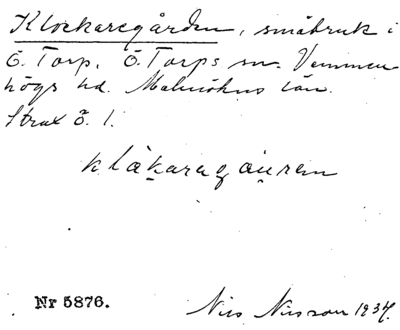 Klockaregården, småbruk i
Ö. Torp. Ö. Torps sn. Vemmen
högs hd. Malmöhus län.
Strax Ö. 1.
klåkaragåuren
Nr 5876. Nils Nilsson 1937.